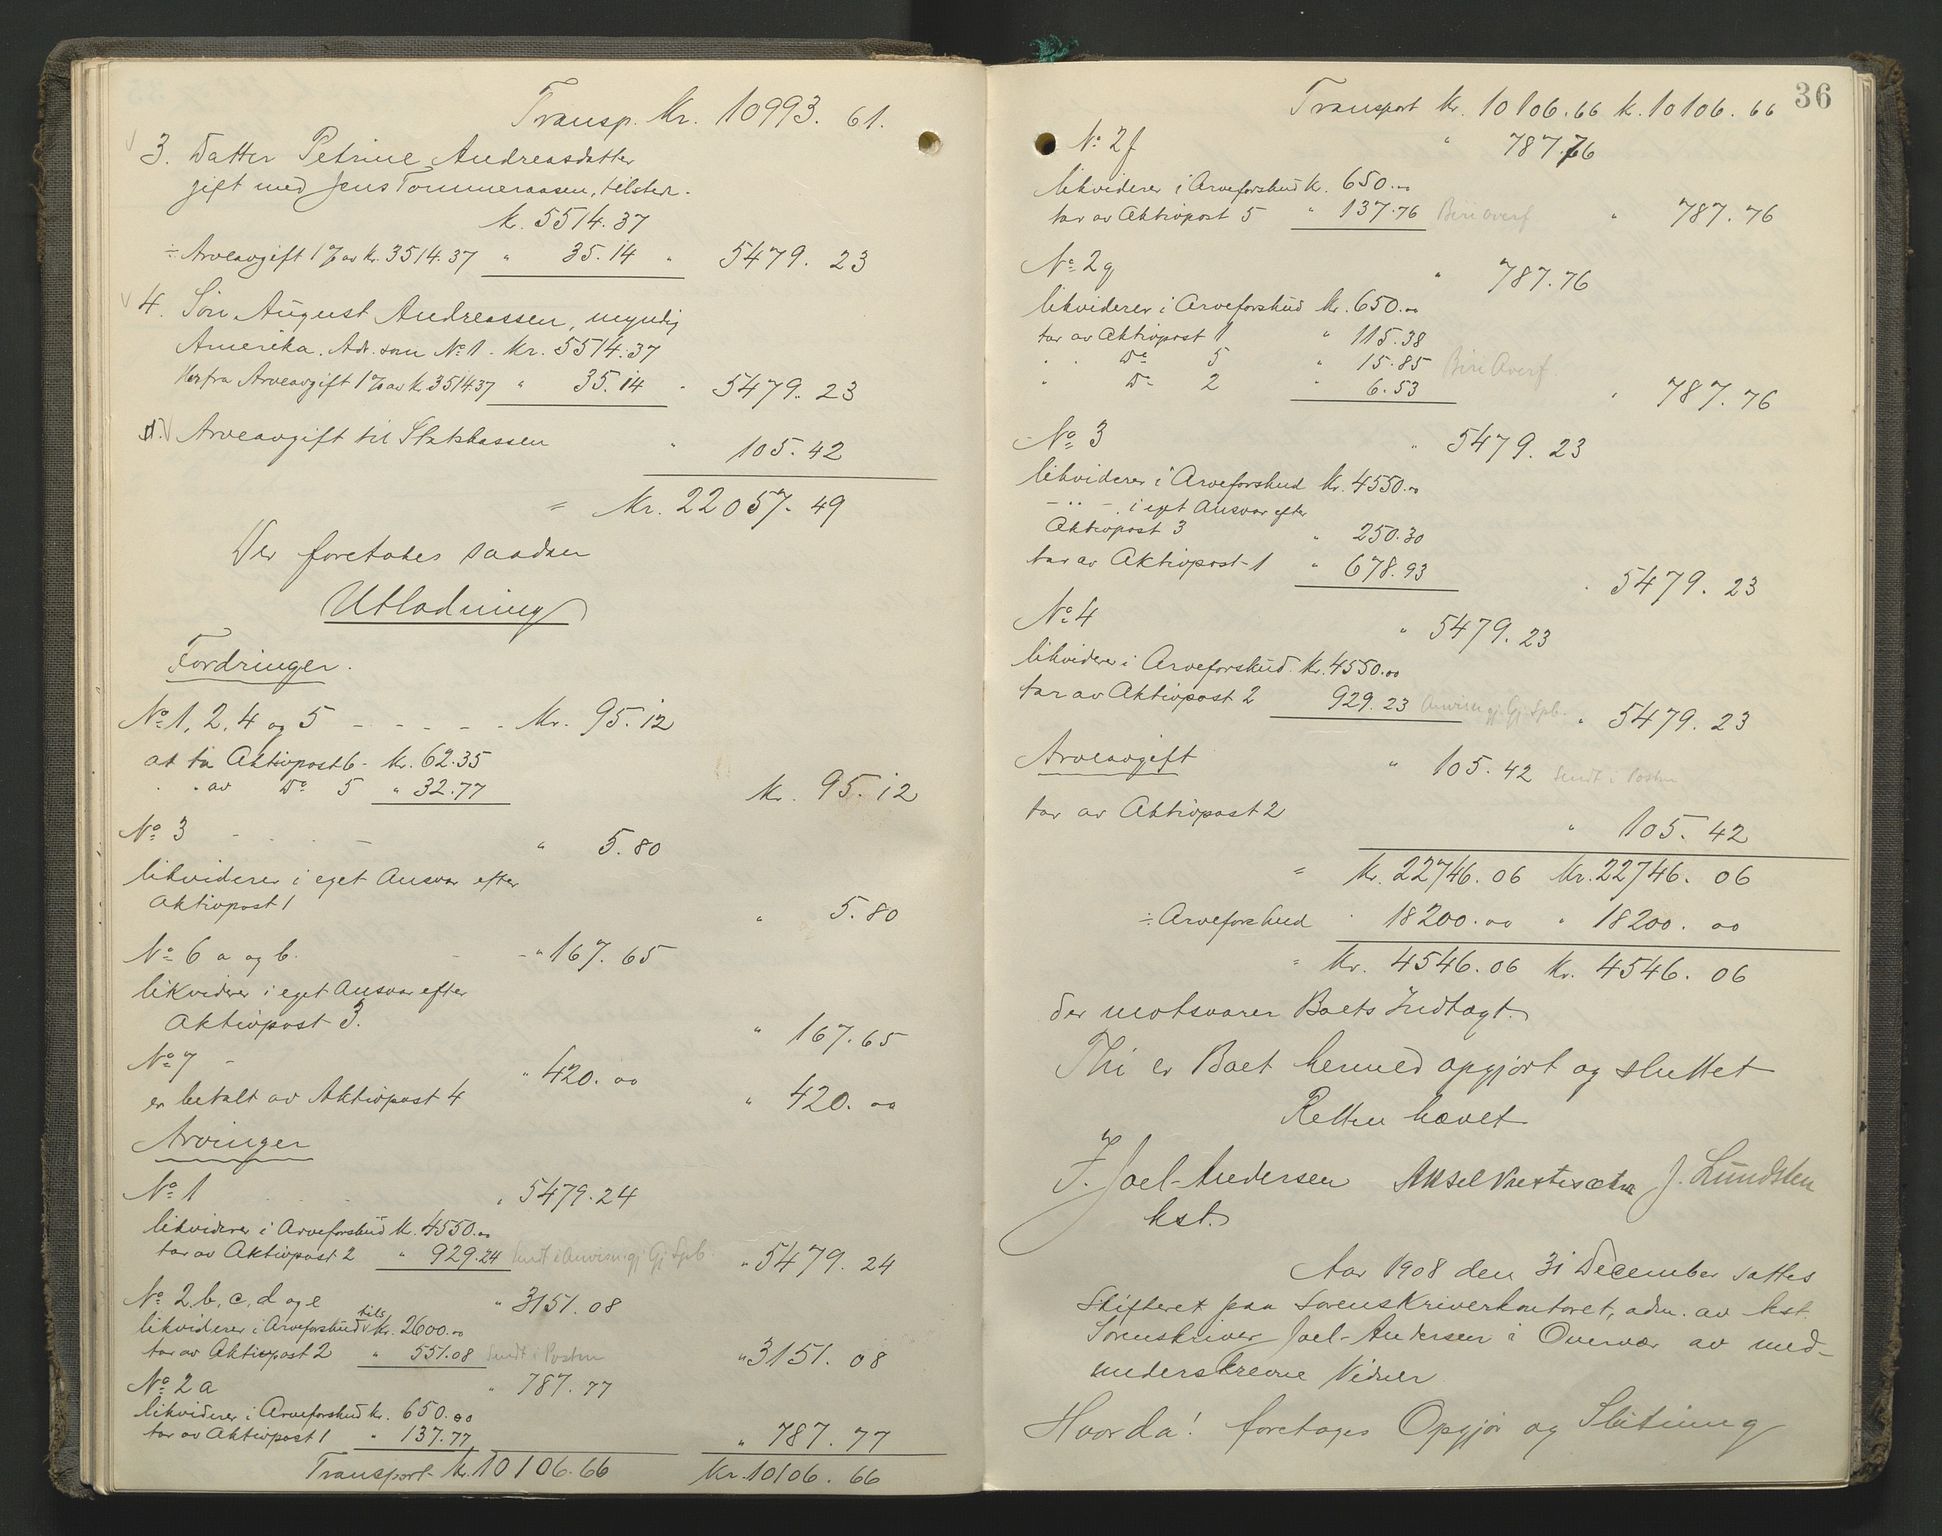 Transp. Kr. 10993. 61.
3. Datter Petrine Andreasdatter
gift med Jens Tommeraasen, tilsted.
k. 5514.37
÷ Arveavgift 1 % av kr. 3514.37 " 35.14 " 5479. 23
4. Søn August Andreassen, myndig
Amerika. Adr. som No 1. Kr. 5514.37
Herfra Arveavgift 1 % av k. 3514.37 " 35.14 " 5479. 23
5. Arveavgift til Statskassen " 105.42
= Kr. 22057.49
Der foretokes saadan
Utlodning
Fordringer.
No 1, 2, 4 og 5 - - - - - Kr. 95.12
at ta Aktivpost 6 - kr. 62.35
" " av Do 5 " 32.77 kr. 95.12
No 3 - - - - " 5.80
likviderer i eget Ansvar efter
Aktivpost 1 " 5.80
No 6 a og b. - - " 167.65
likviderer i eget Ansvar efter
Aktivpost 3. " 167.65
No 7 - " 420.00
er betalt av Aktivpost 4 " 420.00
Arvinger
No 1 " 5479.24
likviderer i Arveforskud k. 4550.00
tar av Aktivpost 2 " 929.24 Sendt i Anvisn gj Gj Spb. " 5479. 24
No 2 b, c, d og e " 3151.08
likviderer i Arveforskud tils. kr. 2600.00
tar av Aktivpost 2 " 551.08 Sendt i Posten " 3151. 08
No 2 a " 787.77
likviderer i Arveforskud kr. 650.00
tar av Aktivpost 1 " 137.77 " 787.77
Transport Kr. 10106.66 Kr. 10106. 66
36
Transport Kr. 10106.66 k. 10106. 66
No 2 f " 787.76
likviderer i Arveforskud k. 650.00
tar av Aktivpost 5 " 137.76 Biri Overf " 787.76
No 2 g " 787.76
likviderer i Arveforskud kr. 650.00
tar av Aktivpost 1 " 115.38
" " Do 5 " 15.85 Biri Overf.
" Do 2 " 6.53 " 787.76
No 3 " 5479. 23
likviderer i Arveforskud kr. 4550.00
- " - i eget Ansvar efter
Aktivpost 3 " 250.30
tar av Aktivpost 1 " 678.93 " 5479. 23
No 4 " 5479. 23
likviderer i Arveforskud. kr. 4550.00
tar av Aktivpost 2 929.23 Anvisn gj. Gj. Spb. " 5479. 23
Arveavgift " 105.42 Sendt i Posten
tar av Aktivpost 2 " 105.42
= Kr. 22746.06 Kr. 22746. 06
÷ Arveforskud " 18200.00 " 18200. 00
= Kr. 4546.06 Kr. 4546. 06
der motsvarer Boets Indtægt.
Thi er Boet hermed opgjort og sluttet
Retten hævet
F. Joel-Andersen Aksel J. Lundsten
kst.
Aar 1908 den 31 December sattes
Skifteret paa Sorenskriverkontoret, adm. av kst.
Sorenskriver Joel-Andersen i Overvær av med-
underskrevne Vidner.
Hvorda! foretoges Opgjør og Slutning